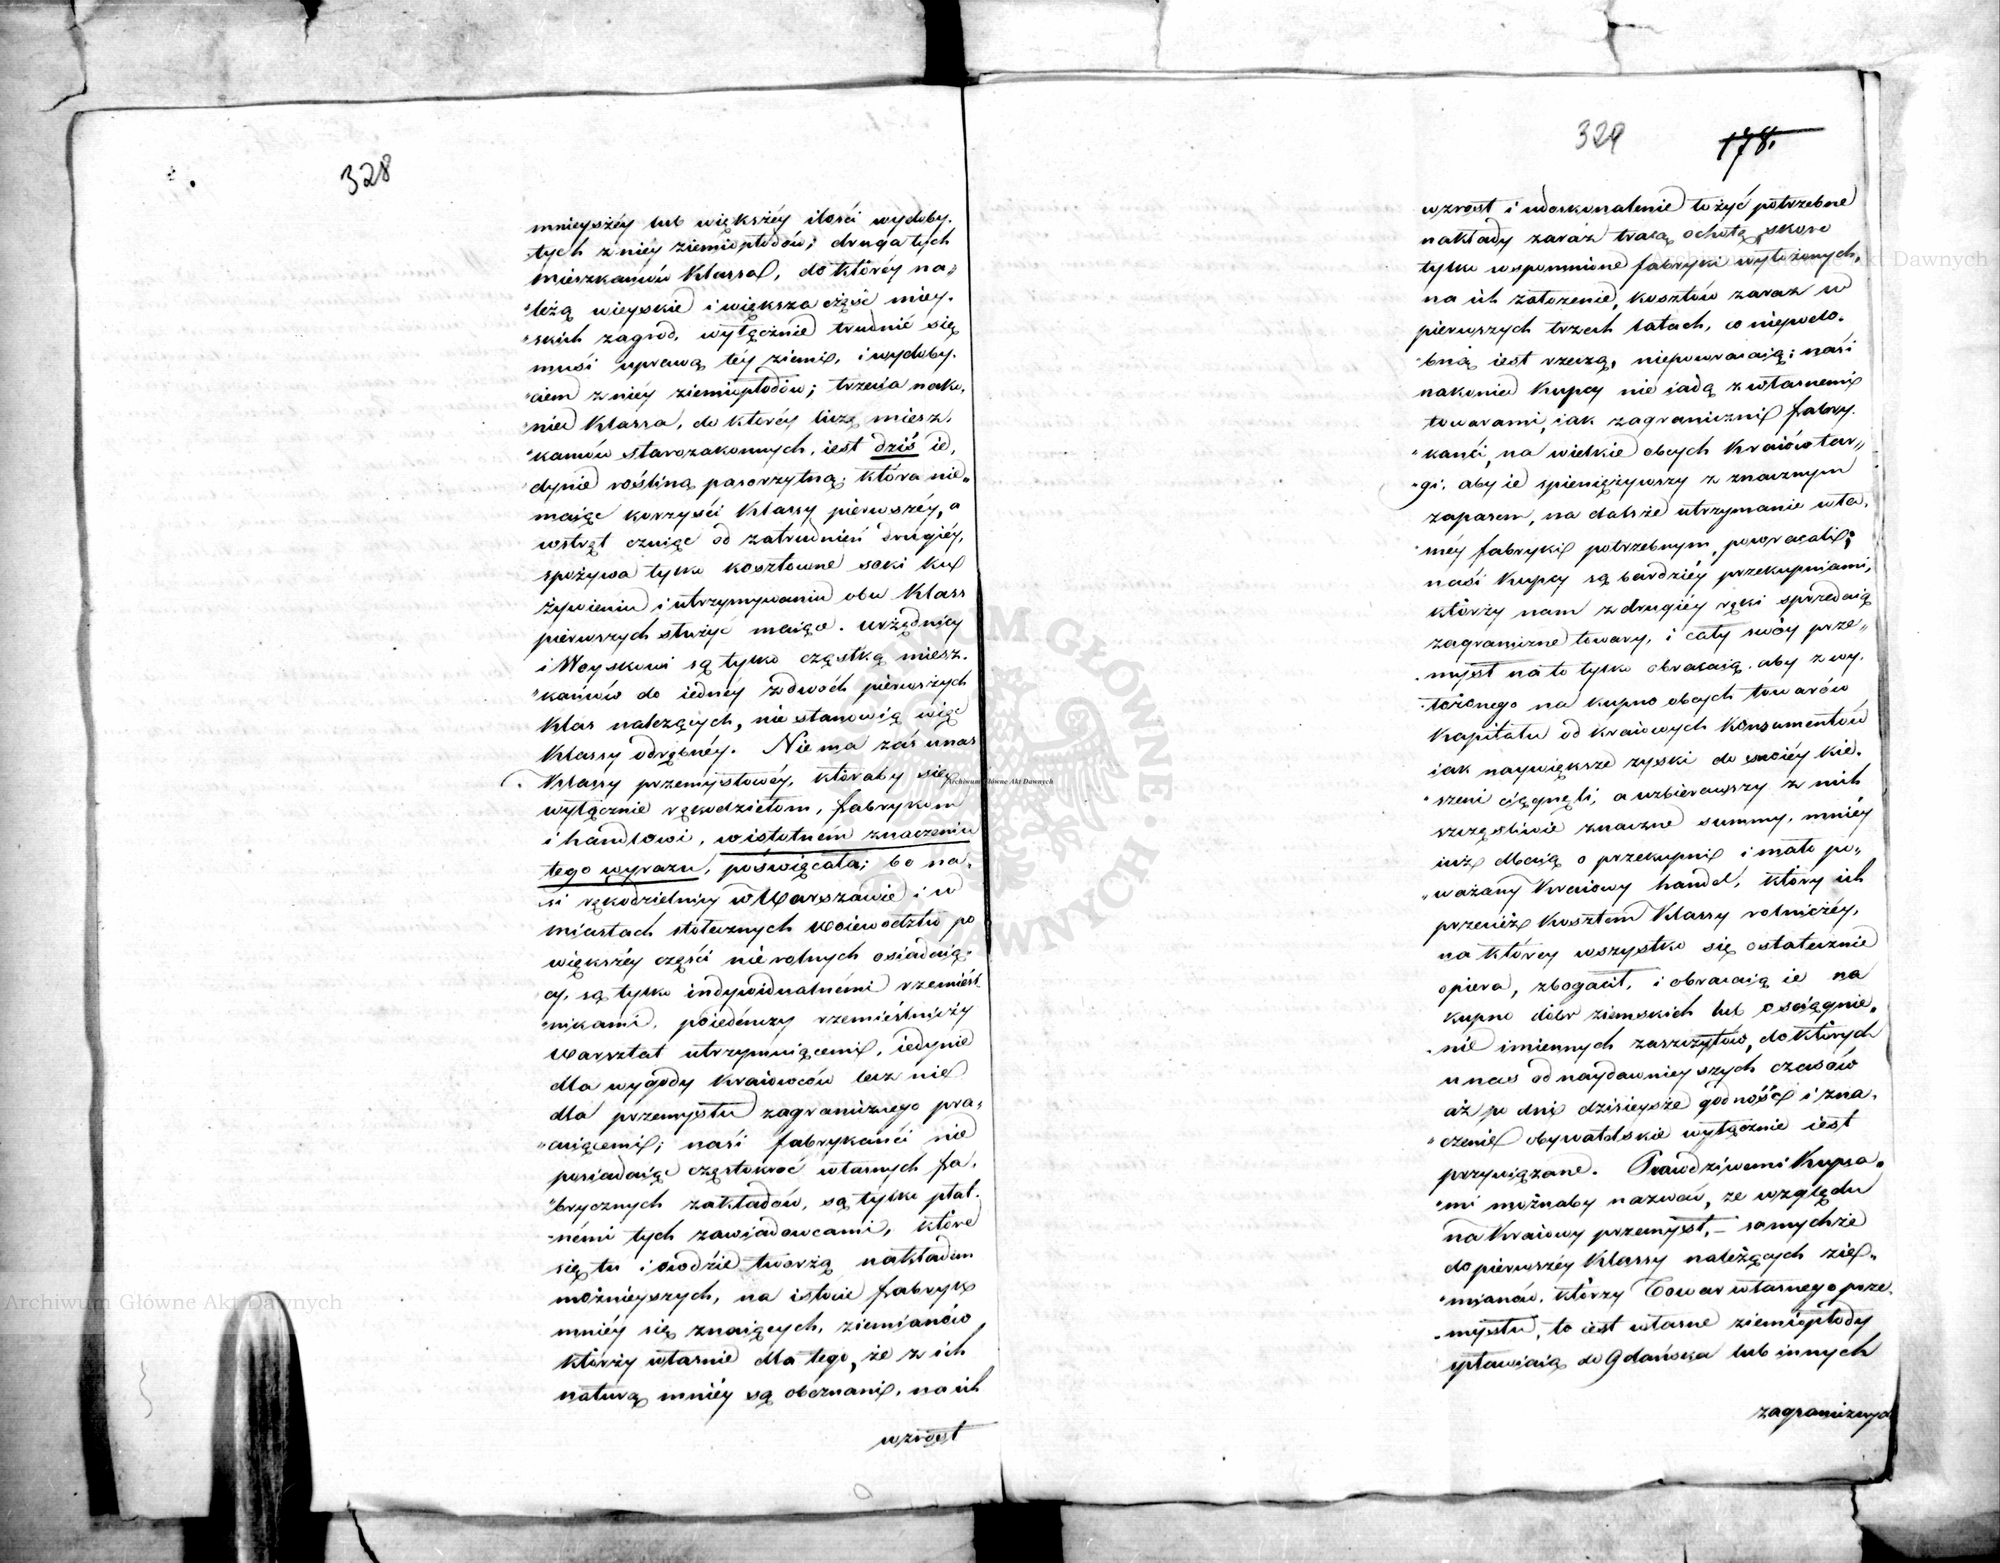 328
mnieyszéy lub większéy ilości wydoby-
tych z niéy ziemiopłodów; druga tych
mieszkańców Klassa, do któréy na„
„leżą wieyskie i większa część miey-
„skich zagrod, wyłącznie trudnić się
musi uprawą téy ziemi, i wydoby-
„ciem z niéy ziemiopłodów; trzecia nako-
„niec Klassa, do któréy liczę miesz-
„kańców starozakonnych, iest dziś ie-
dynie rośliną pasorzytną; która nie„
maiąc korzyści Klassy pierwszéy, a
wstręt czuiąc od zatrudnień drugiéy,
spożywa tylko kosztowne soki ku
żywieniu i utrzymywaniu obu Klass
pierwszych służyć maiące. Urzędnicy
i Woyskowi są tylko cząstką miesz-
„kańców do iednéy z dwóch pierwszych
Klas należących, nie stanowią więc
Klassy odrębnéy. Nie ma zaś u nas
Klassy przemysłowéy, któraby się
wyłącznie rękodziełom, fabrykom
i handlowi, w istotném znaczeniu
tego wyrazu, poświęcała; bo na-
si rękodzielnicy w Warszawie i w
miastach stołecznych Woiewodztw po
większéy części nie rolnych osiadaią-
cy, są tylko indywidualnémi rzemieśl-
„nikami, poiedynczy rzemieślniczy
Warsztat utrzymuiącemi, iedynie
dla wygody Kraiowców lecz nie
dla przemysłu zagranicznego pra-
„cuiącemi; naśi fabrykańći nie
posiadaiąc częstokroć własnych fa-
„brycznych zakładów, są tylko płat-
„némi tych zawiadowcami, które
się tu i owdzie tworzą nakładem
możnieyszych, na istocie fabryk
mniéy się znaiących, ziemianów
którzy własnie dla tego, że z ich
naturą mniéy są obeznani, na ich
wzrost
329 178.
wzrost i udoskonalenie łożyć potrzebne
nakłady zaraz tracą ochotę, skoro
tylko wspomnione fabryki wyłożonych„
na ich założenie, kosztów zaraz w
pierwszych trzech latach, co niepodo-
„bną iest rzeczą, niepowracaią; naśi
nakoniec Kupcy nie iadą z własnemi
towarami, iak zagraniczni fabry-
„kanći, na wielkie obcych Kraiów tar„
„gi, aby ie spieniężywszy z znacznym
zapasem, na dalsze utrzymanie wła-
„snéy fabryki potrzebnym, powracali;
naśi Kupcy są bardziéy przekupniami,
którzy nam z drugiéy ręki sprzedaią
zagraniczne towary, i cały swóy prze„
„mysł na to tylko obracaią, aby z wy-
„łożonego na kupno obcych towarów
Kapitału od kraiowych Konsumentów
iak naywiększe zyski do swoiéy kie-
„szeni ciągnęli, a uzbierawszy z nich
szczęśliwie znaczne summy, mniéy
iuż dbaią o przekupni i mało po„
„ważany Kraiowy handel, który ich
przecież kosztem Klassy rolniczéy,
na któréy wszystko się ostatecznie
opiera, zbogacił, i obracaią ie na
kupno dóbr ziemskich lub osiągnie„
„nie imiennych zaszczytów, do których
u nas od naydawnieyszych czasów
aż po dni dzisieysze godność i zna-
„czenie obywatelskie wyłącznie iest
przywiązane. Prawdziwemi Kupca„
„mi możnaby nazwać, ze względu
na Kraiowy przemysł, – samychże
do pierwszéy Klassy należących zie„
„mianów, którzy Towar własnego prze-
„mysłu, to iest własne ziemiopłody
spławiaią do Gdańska lub innych
zagranicznych